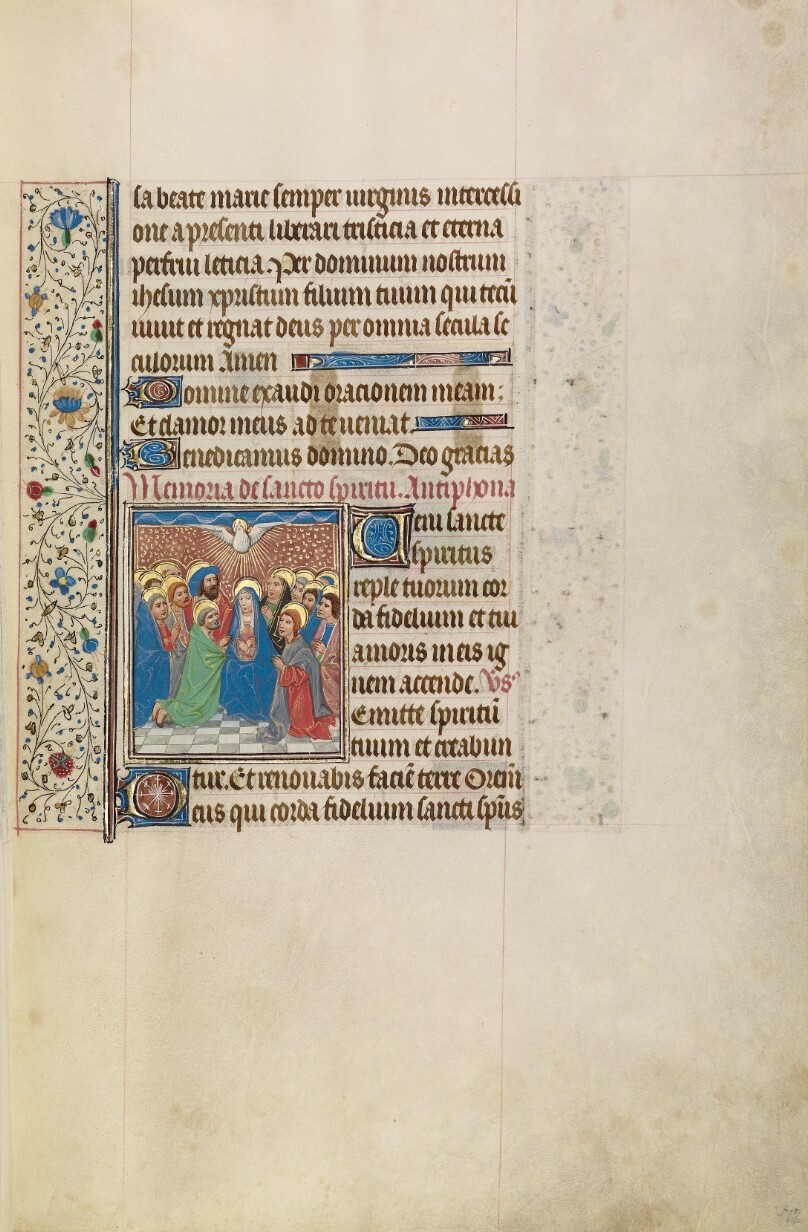 sa beate marie semper uirginis intercessi
one a presenti liberari tristicia et eterna
perfrui leticia. Per dominum nostrum
ihesum xpristum filium tuum qui tecū
uiuit et regnat deus per omnia secula se
culorum Amen
Domine exaudi oracionem meam:
Et clamor meus ad te ueniat.
Benedicamus domino. Deo gracias
Memoria de sancto spiritu. Antiphona
Ueni sancte
spiritus
reple tuorum cor
da fidelium et tui
amoris in eis ig
nem accende. Vs
Emitte spiritū
tuum et creabun
tur. Et renouabis faciē terre Orem̄
Deus qui corda fidelium sancti sp̄us